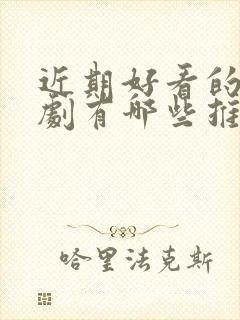 近期好看的
劇有哪些推
哈里法克斯